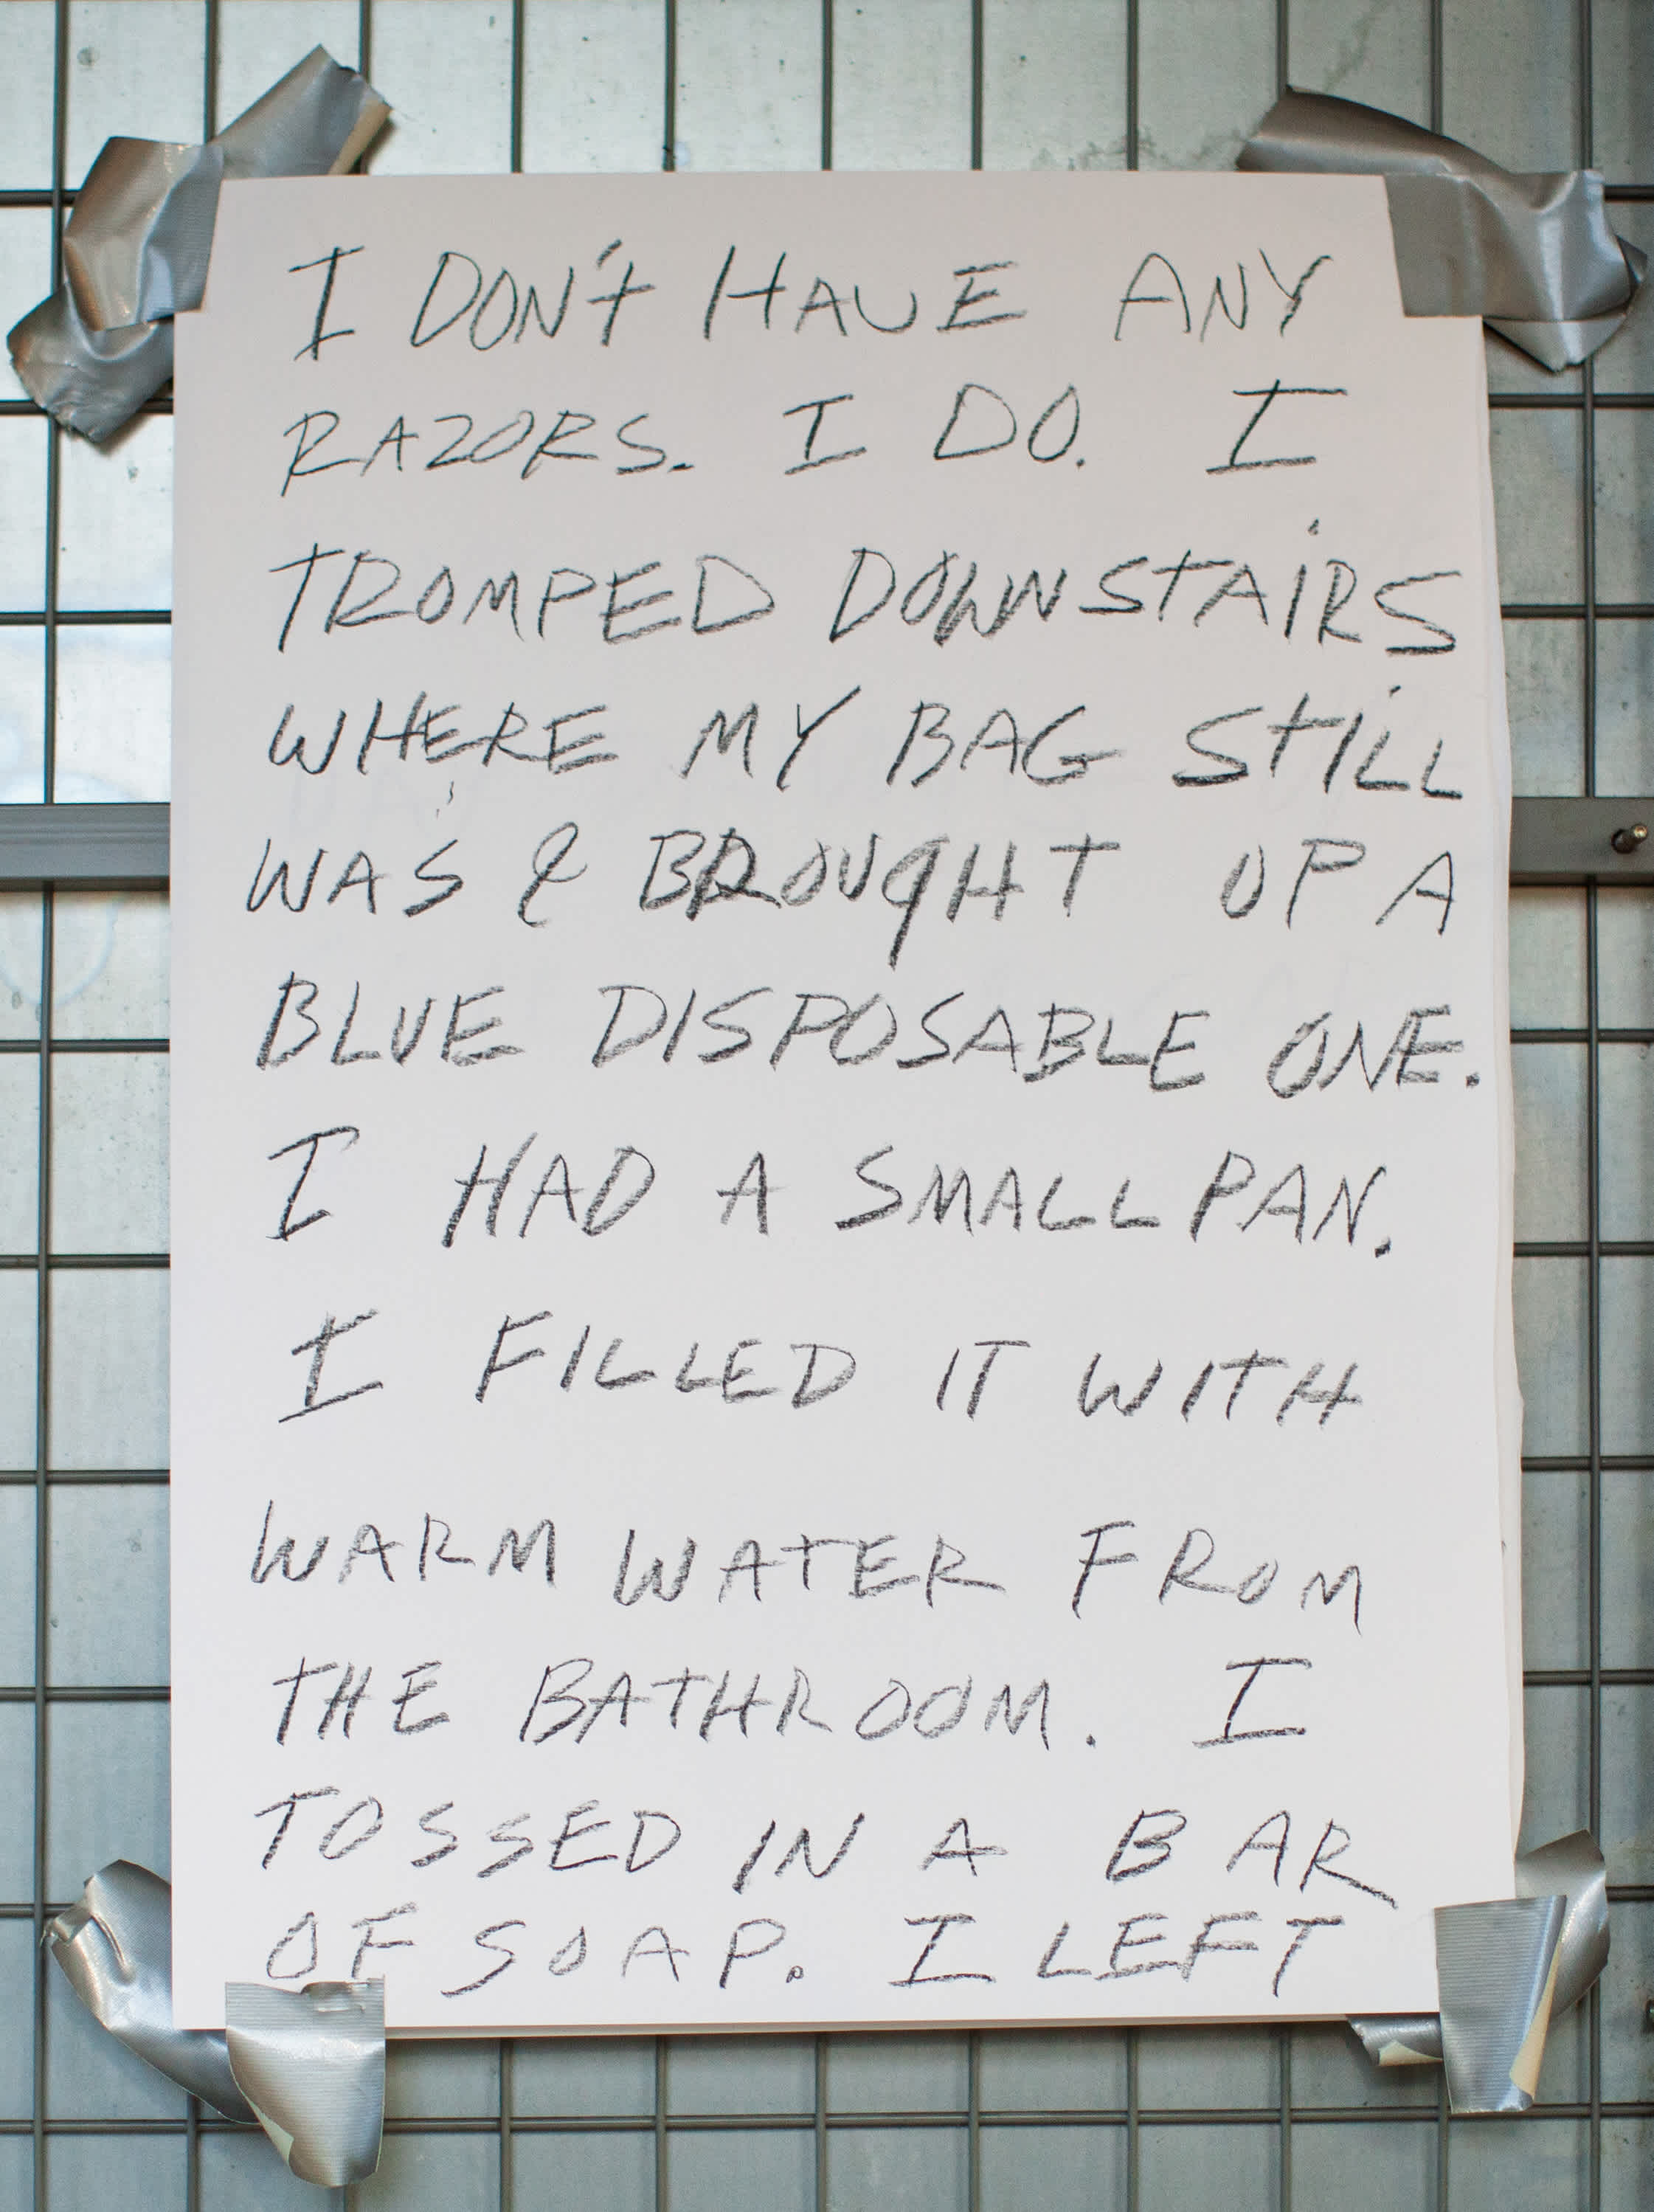 I DON'T HAVE ANY
RAZORS. I DO. I
TROMPED DOWNSTAIRS
WHERE MY BAG STILL
WAS & BROUGHT UP A
BLUE DISPOSABLE ONE.
I HAD A SMALL PAN.
I FILLED IT WITH
WARM WATER FROM
THE BATHROOM. I
TOSSED IN A BAR
OF SOAP. I LEFT